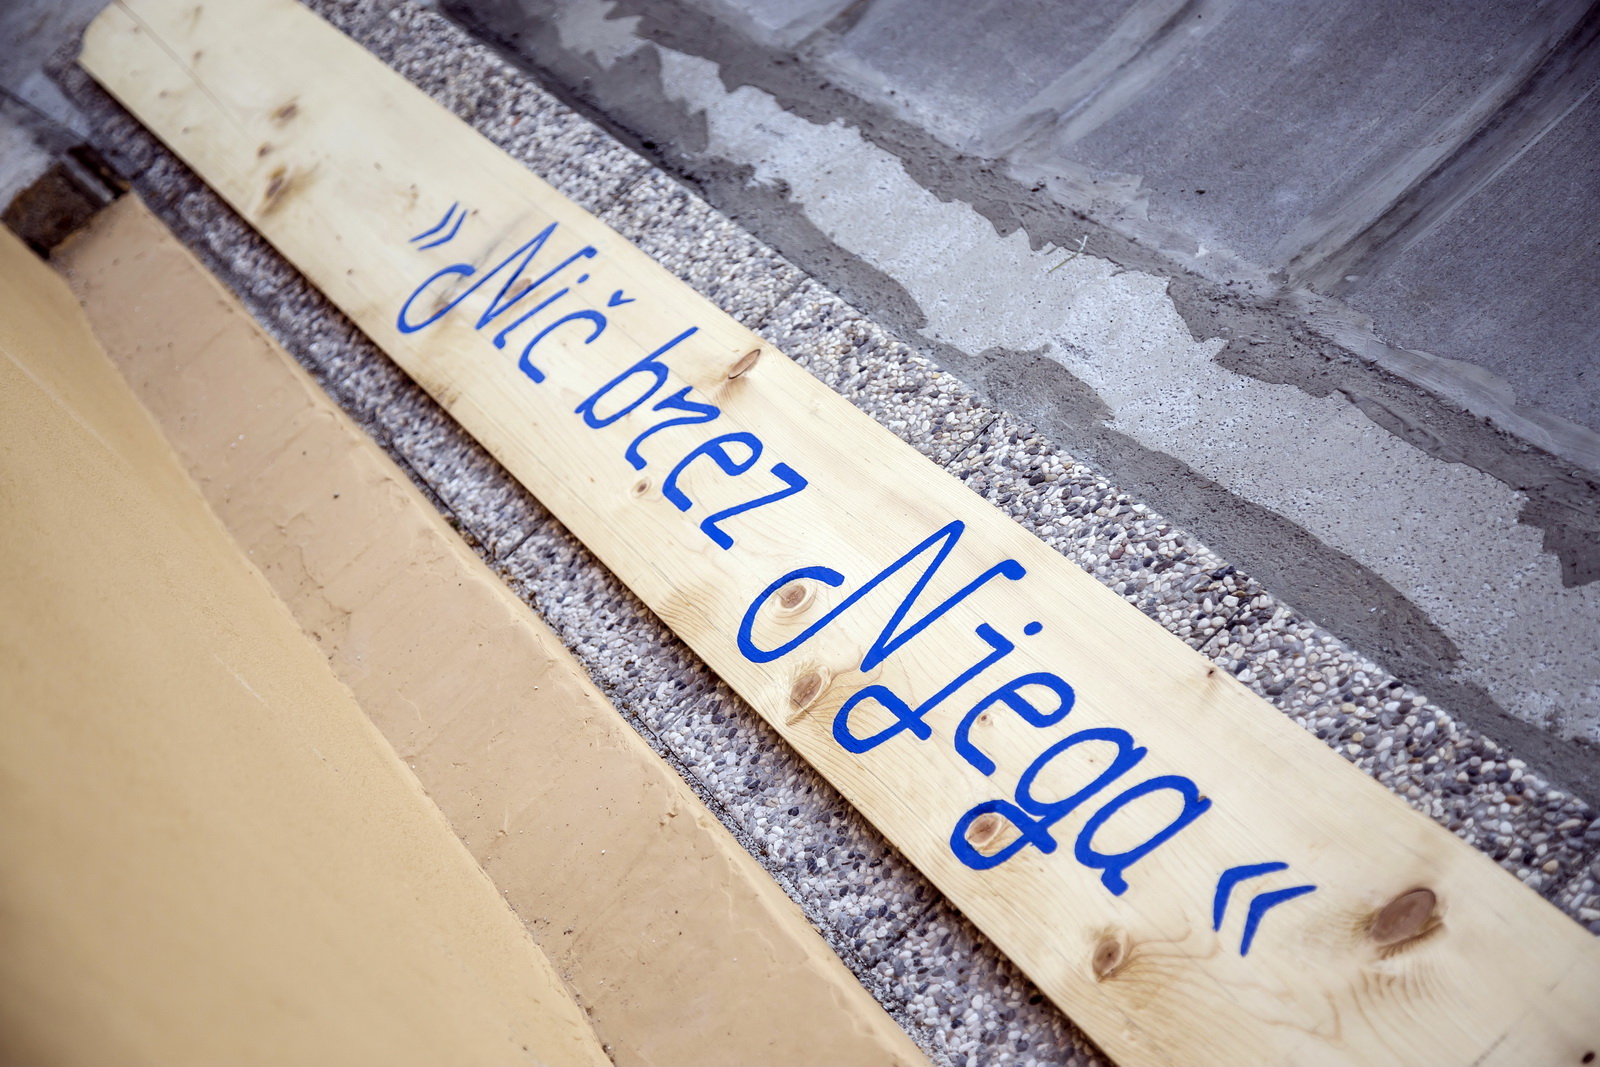 »Nič brez Njega«